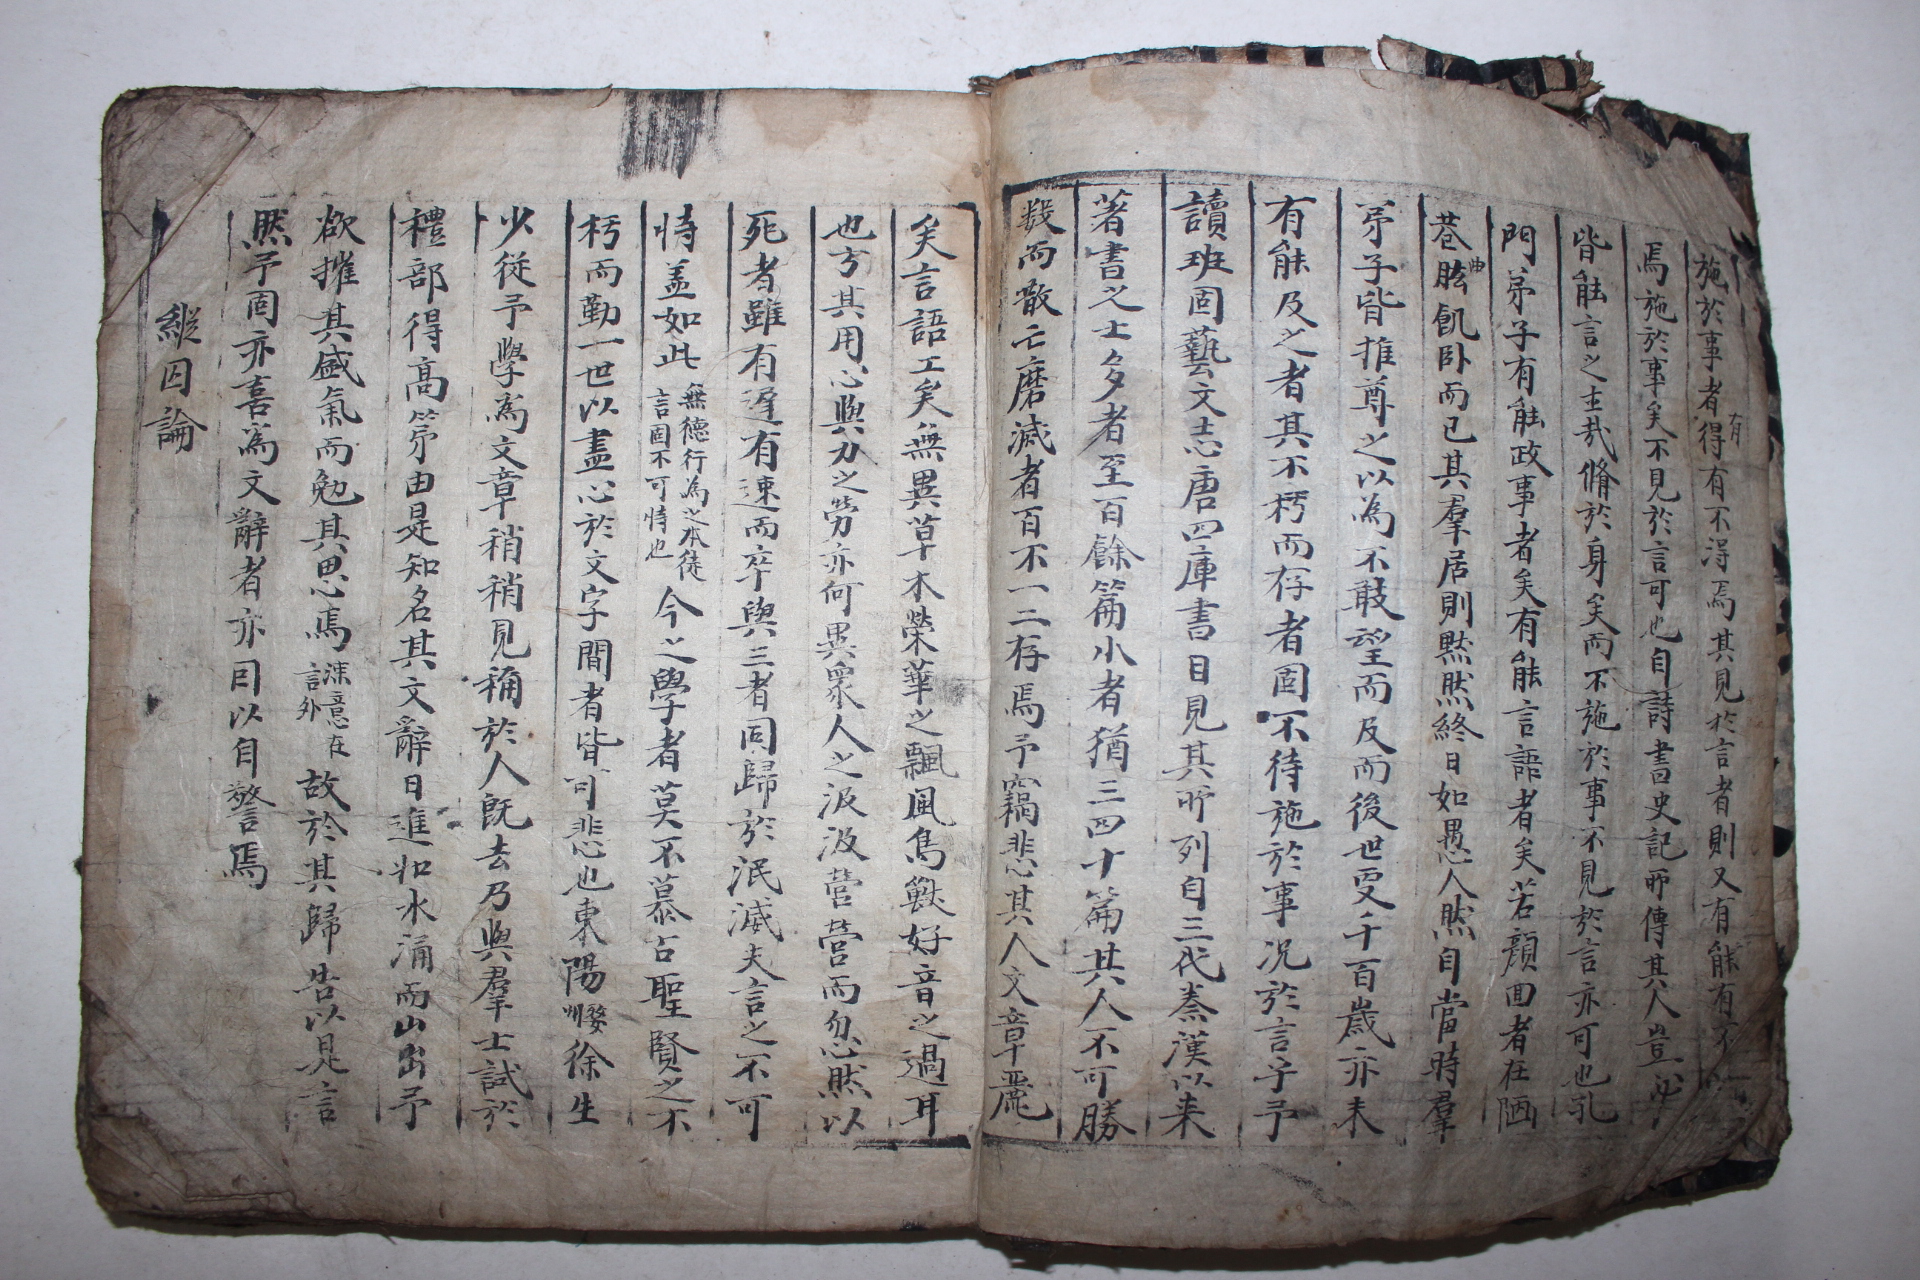 施於事者得有不得焉其見於言者則又有能有不
有
焉施於事矣不見於言可也自詩書史記所傳其人豈必
皆能言之士哉脩於身矣而不施於事不見於言亦可也孔
門弟子有能政事者矣有能言語者矣若顔回者在陋
巷肱飢卧而已其羣居則黙然終日如愚人然自當時羣
曲
弟子皆推尊之以為不敢望而及而後世更千百歲亦未
有能及之者其不朽而存者固不待施於事況於言乎予
讀班固藝文志唐四庫書目見其所列自三代秦漢以来
著書之士多者至百餘篇小者猶三四十篇其人不可勝
數而散亡磨滅者百不一二存焉予竊悲其人文章麗
矣言語工矣無異草木榮華之飄風鳥獸好音之過耳
也方其用心與力之勞亦何異衆人之汲汲營營而忽然以
死者雖有遅有速而卒與三者同歸於泯滅夫言之不可
恃盖如此
無德行為之本徒
言固不可恃也
今之學者莫不慕古聖賢之不
朽而勤一世以盡心於文字間者皆可悲也東陽
婺
州
徐生
少従予學為文章稍稍見稱於人旣去乃與羣士試於
禮部得高第由是知名其文辭日進如水涌而山出予
欲摧其盛氣而勉其思焉
深意在
言外
故於其歸告以是言
然予固亦喜為文辭者亦因以自警焉
縱囚論